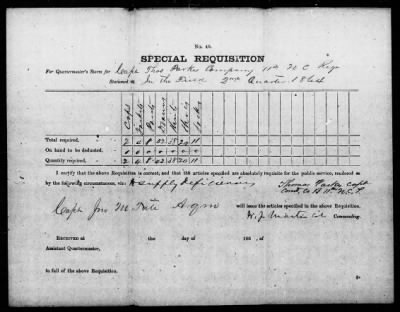 No. 40.
SPECIAL REQUISITION
For Quartermaster's Stores for Capt Thos Parks Company 11th N C Regt
Stationed at In The Field 2nd Quarter 1864
Caps Jackets Pants Drawers Shirts Shoes Socks
Total required,
On hand to be deducted,
Quantity required,
I certify that the above Requisition is correct, and that the articles specified are absolutely requisite for the public service, rendered so
by the following circumstances, viz: To supply deficiencies
Thomas Parks Capt
Capt Jno M Tate AQM will issue the articles specified in the above Requisition.
W. J. Martin Col Commanding.
Received at the day of 186 , of
Assistant Quartermaster,
in full of the above Requisition.